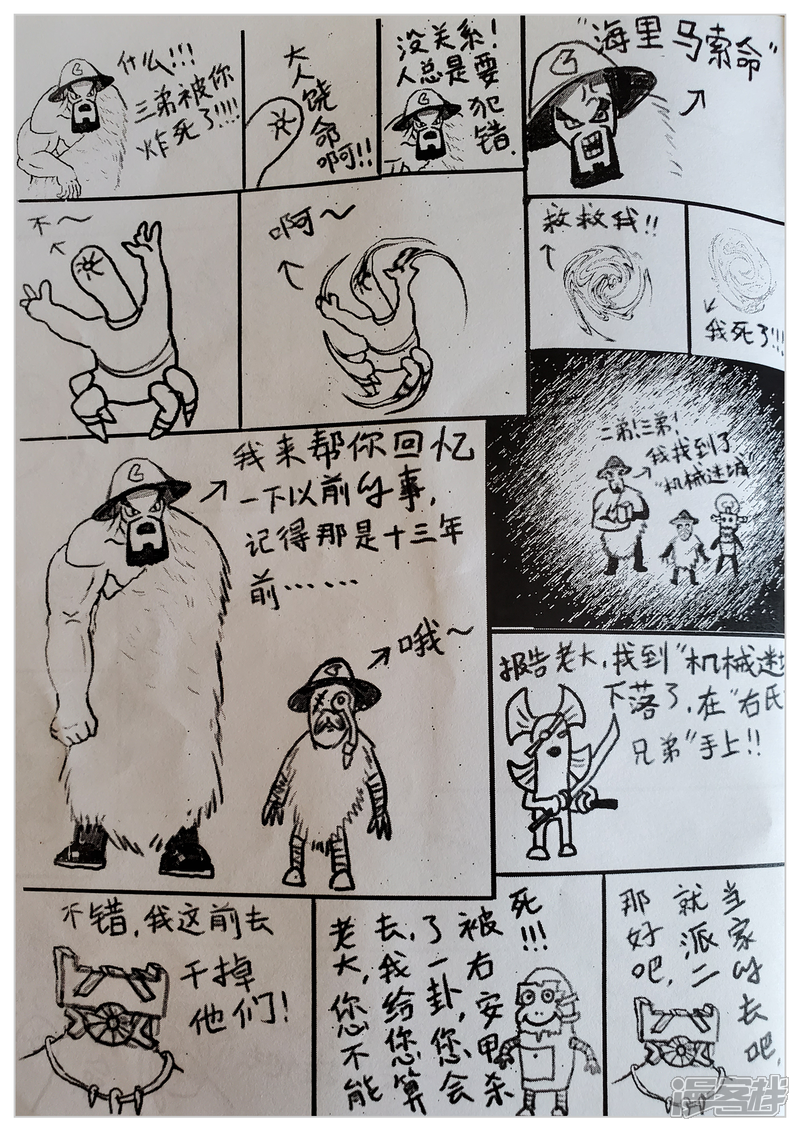 什么!!!
三弟被你
炸死了!!!!
大人饶命啊!!
没关系!
人总是要
犯错.
"海里马索命"
不～
啊～
救救我!!
我死了!!!
我来帮你回忆
一下以前的事,
记得那是十三年
前……
哦～
二弟!三弟!
我找到了
"机械迷城"
报告老大,找到"机械迷
下落了,在"右氏
兄弟"手上!!
不错,我这前去
干掉
他们!
老大,您不能
去,我给您算
了一卦,您会
被右安甲杀
死!!!
那好吧,
就派二
当家的去吧.
漫客栈